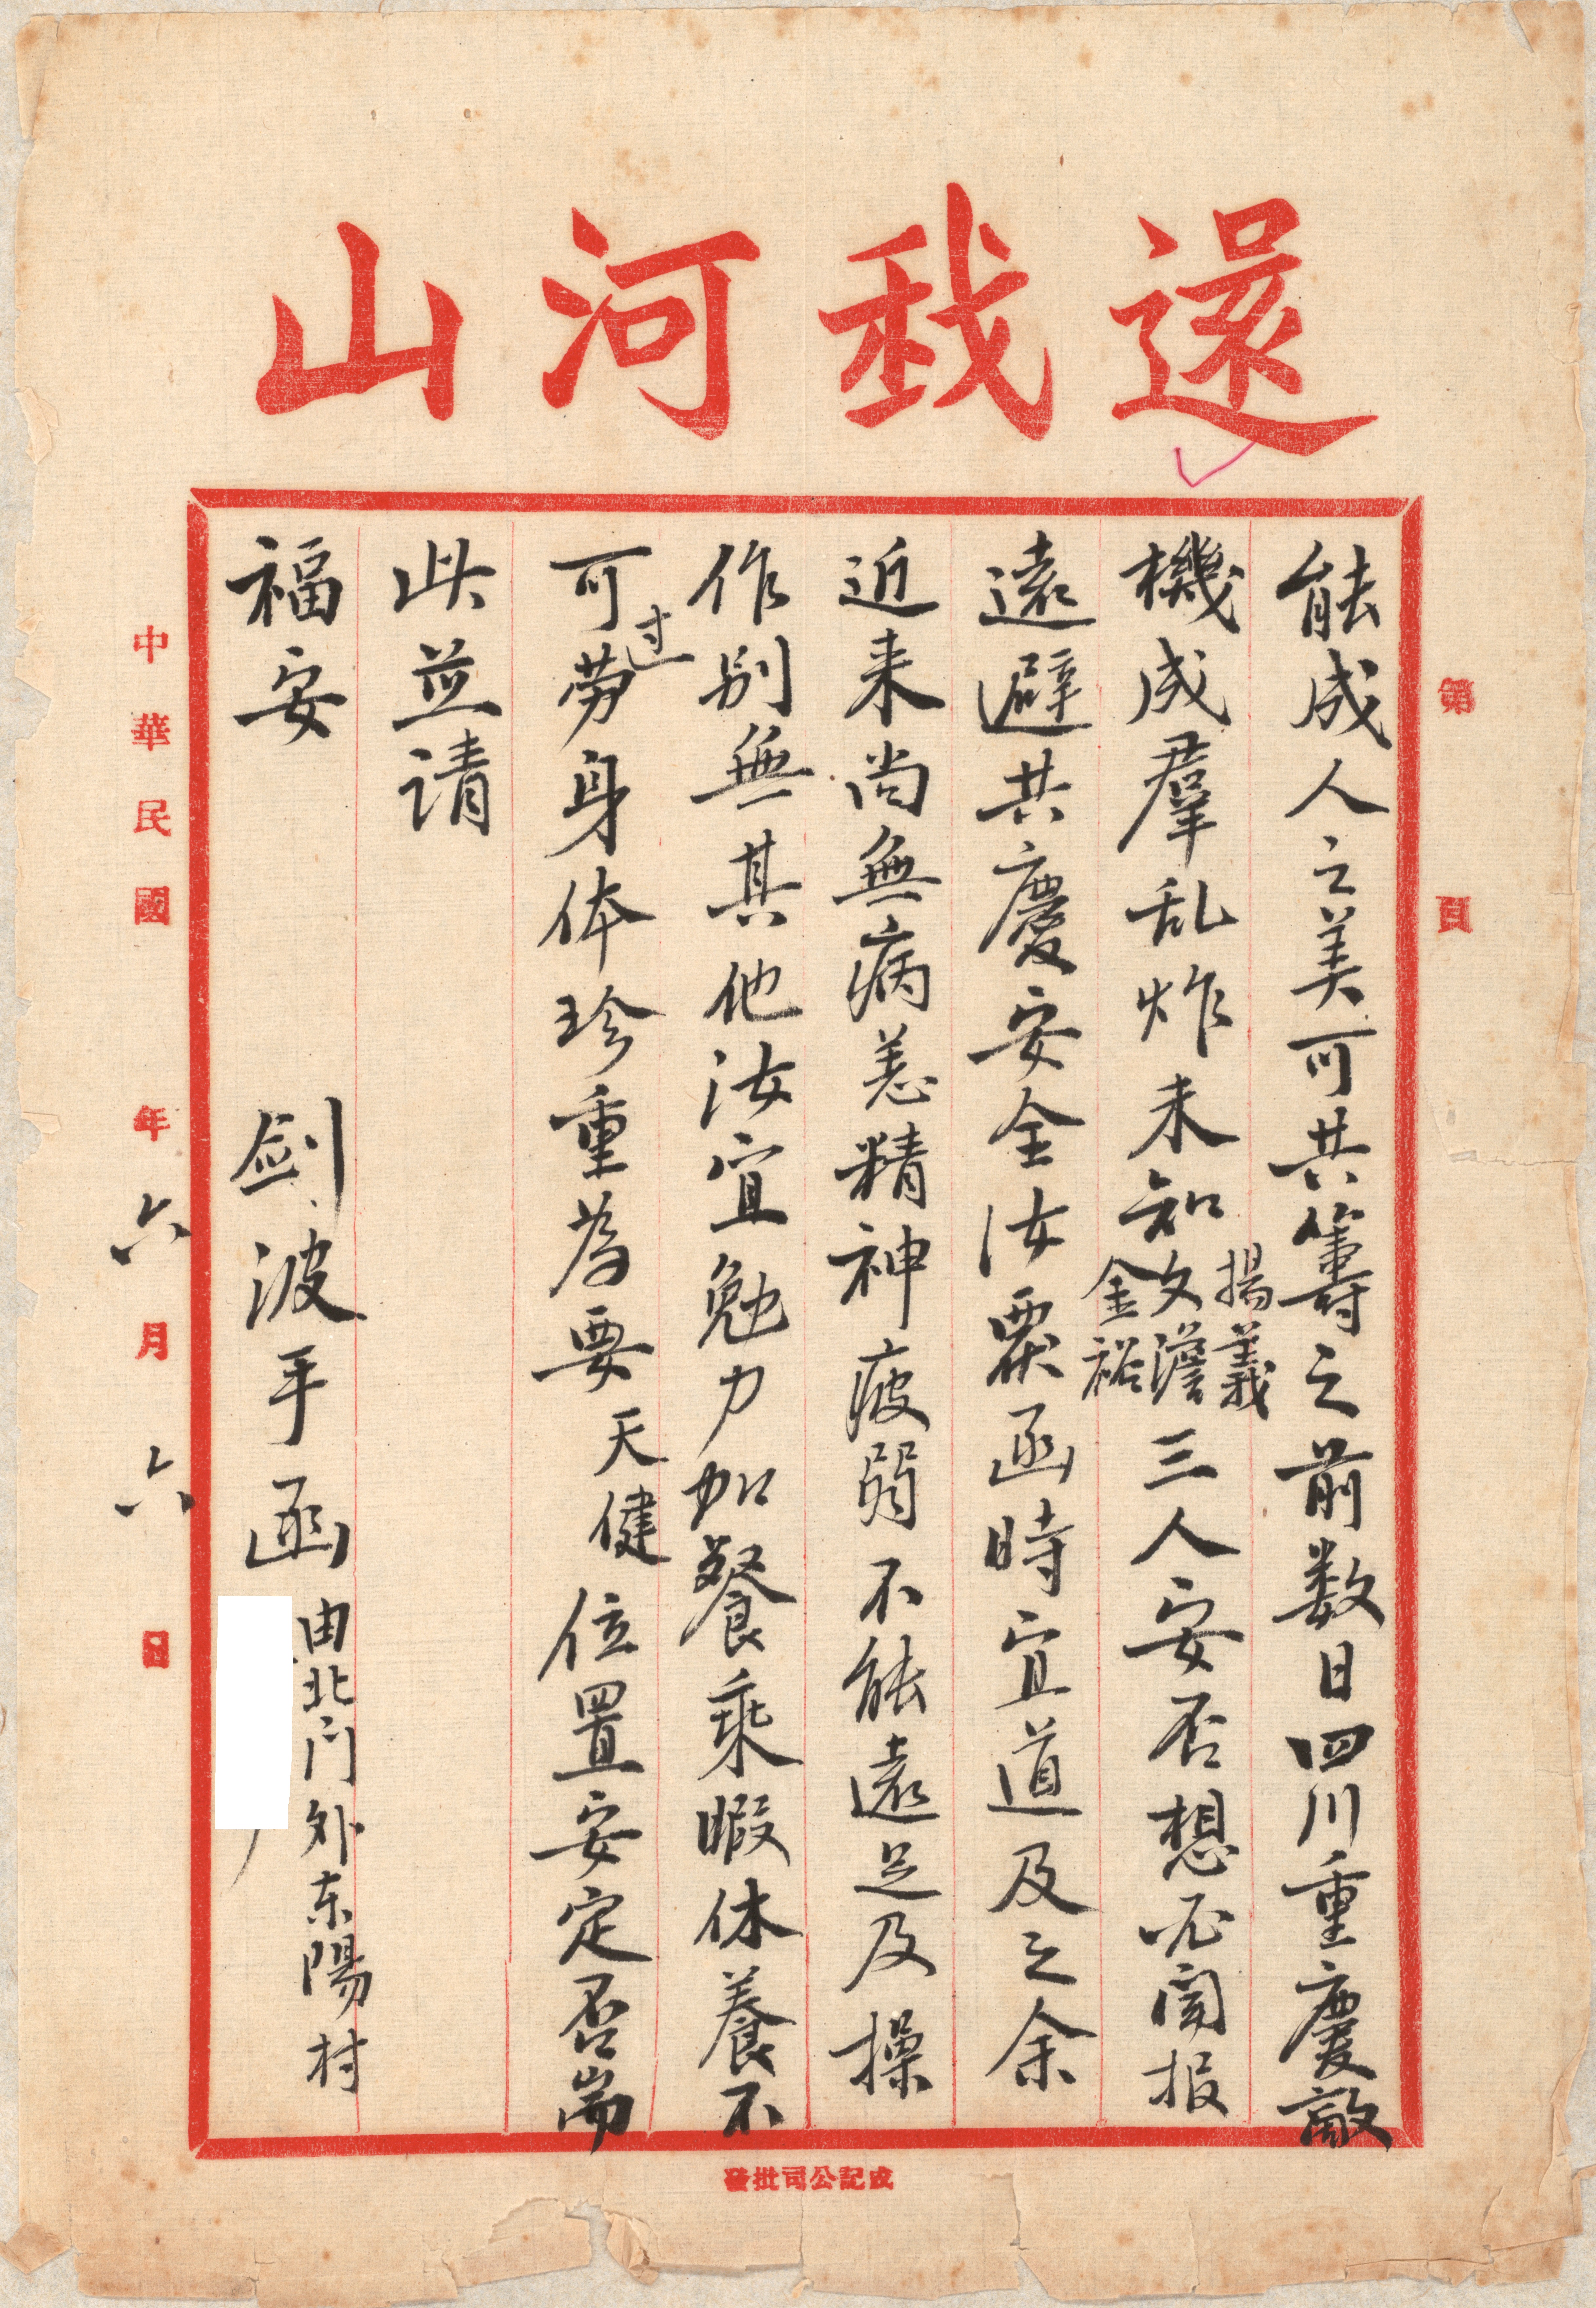 還我河山
第　頁
能成人之美可共籌之前数日四川重慶敵
機成羣乱炸未知揚義文澹金裕三人安否想必闻报
遠避共慶安全汝覆函時宜道及之余
近来尚無病恙精神疲弱不能遠足及操
作别無其他汝宜勉力加餐乘暇休養不
可过劳身体珍重為要天健位置安定否耑
此並请
福安
剑波手函由北门外东陽村
中華民國　年六月六日
成記公司批發